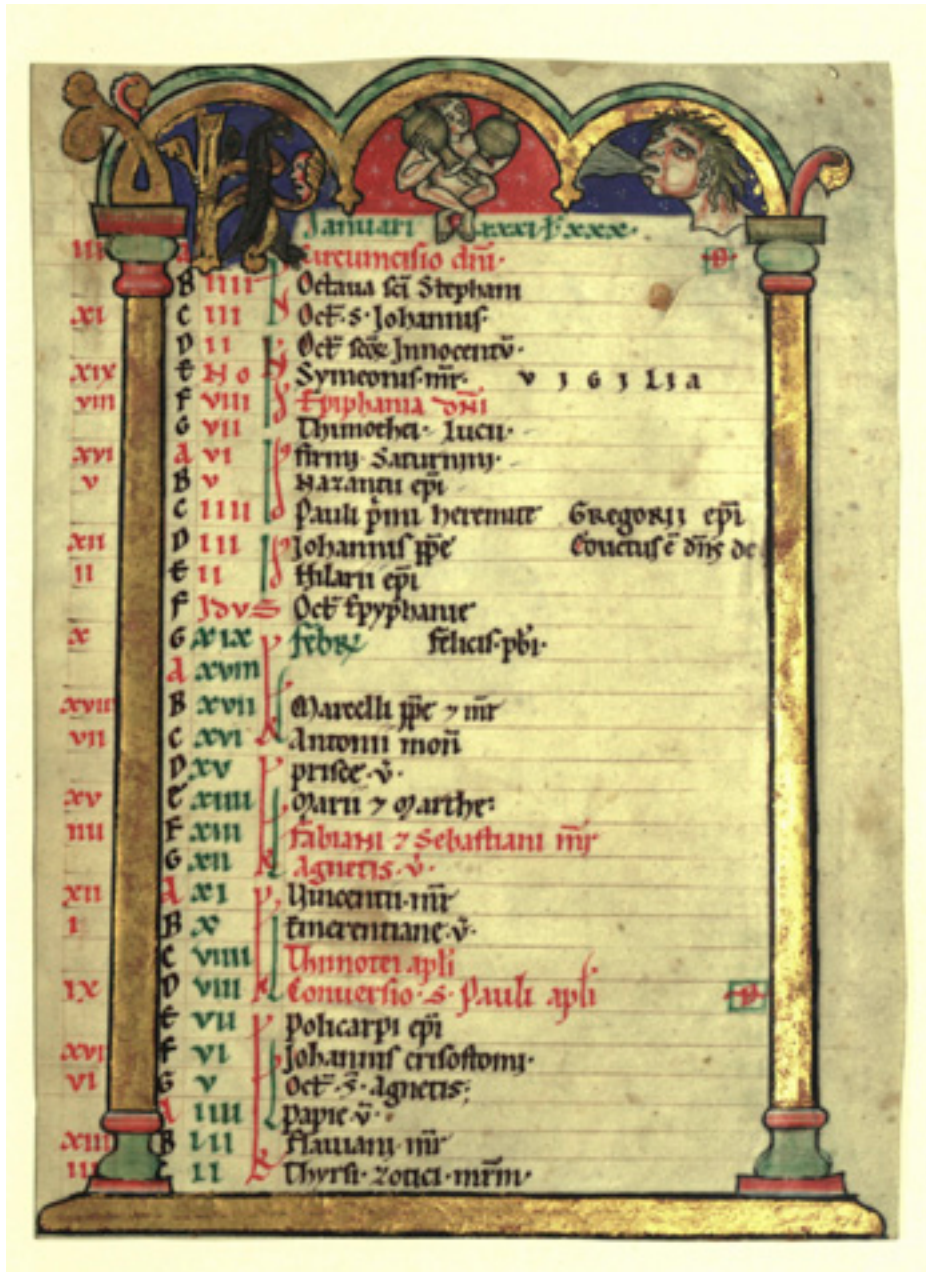 Januari xxxi l xxx.
III a Circumcisio dni.
B IIII Octaua sci Stephani
XI C III Oct. s. Johannis.
D II Oct scoz Innocentu.
XIX E No Symeonis. mr. VIGILIA
VIII F VIII Epiphania dni
G VII Thimothei. Lucii.
XVI A VI firmi Saturnini.
V B V Nazantii epi
C IIII Pauli pimi heremite Gregorii epi
XII D III Johannis ppe
II E II Hilarii epi
F Idus Oct Epyphanie
X G XIX febr felicis. pbi.
A XVIII
XVIII B XVII Marcelli ppe 7 mr
VII C XVI Antonii mon
D XV prisce v.
XV E XIIII Marii 7 Marthe:
IIII F XIII Fabiani 7 Sebastiani mr
G XII Agnetis. v.
XII A XI Vincentii. mr
I B X Emerentiane. v.
C VIIII Thimotei apli
IX D VIII Conuersio. s. Pauli apli
E VII Policarpi epi
XVII F VI Johannis crisostomi.
VI G V Oct. s. Agnetis;
A IIII papie v.
XIIII B III Flauiani mr
III C II Thyrsi. zotici. mrm.